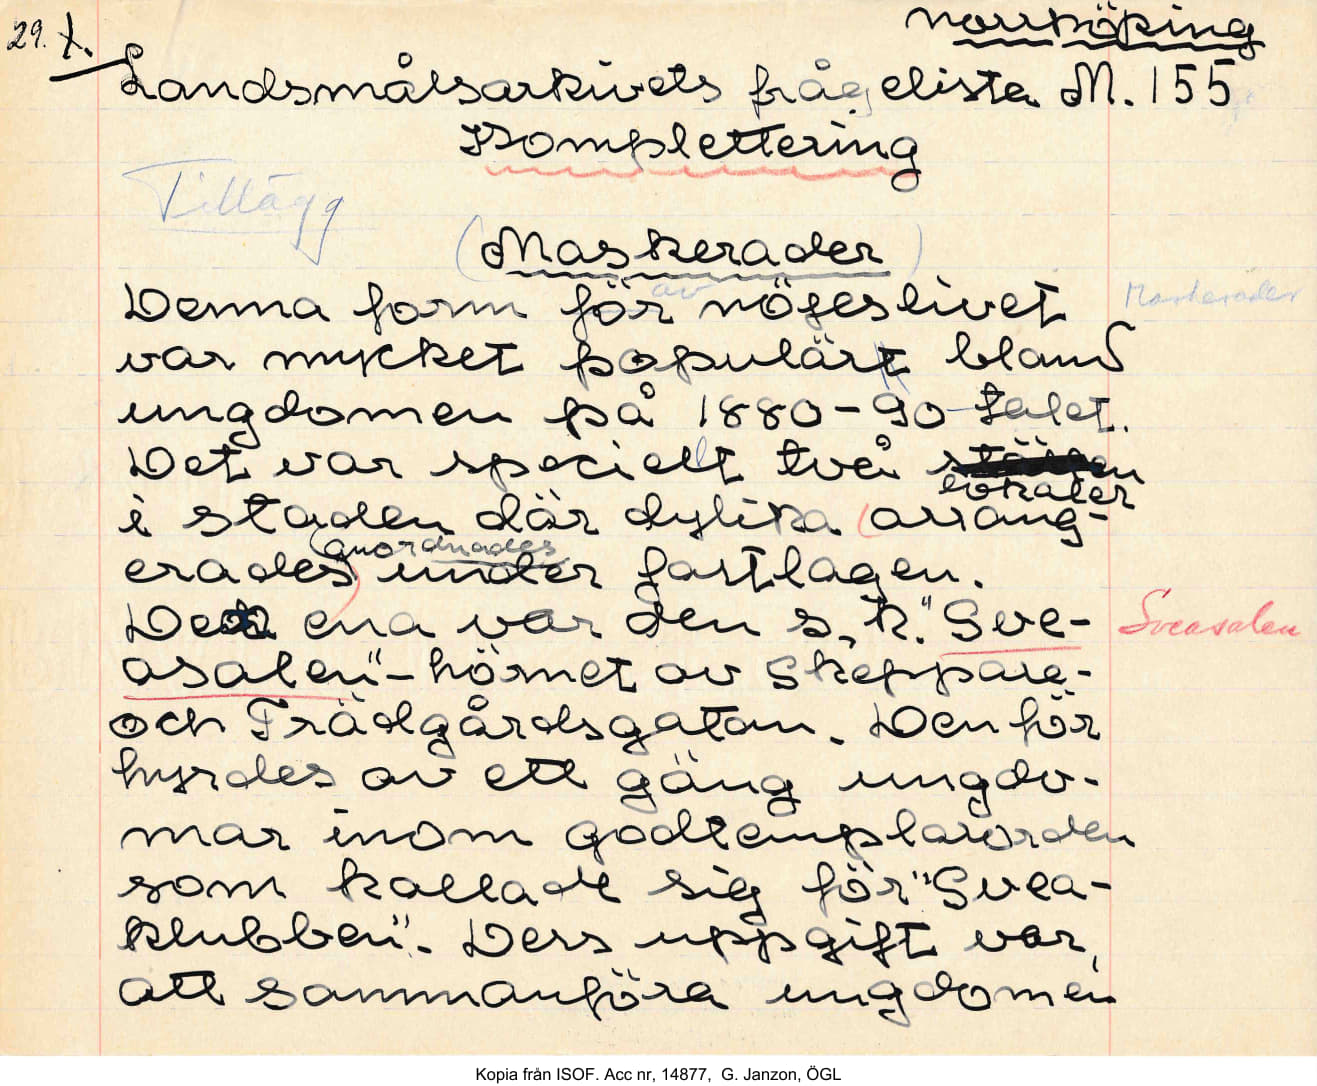 29. 1.
Norrköping
Landsmålsarkivets frågelista M. 155
Komplettering
Tillägg
(Maskerader)
av
Denna form för nöjeslivet
Maskerader
var mycket populärt bland
ungdomen på 1880-90-talet.
Det var speciellt två
lokaler
i staden där dylika (arrang-
(anordnades
erades) under fastlagen.
Den ena var den s.k. "Sve-
Sveasalen
asalen"-hörnet av Skeppare-
och Trädgårdsgatan. Den för
hyrdes av ett gäng ungdo-
mar inom godtemplarorden
som kallade sig för "Svea-
klubben". Dess uppgift var,
att sammanföra ungdomen
Kopia från ISOF. Acc nr, 14877, G. Janzon, ÖGL